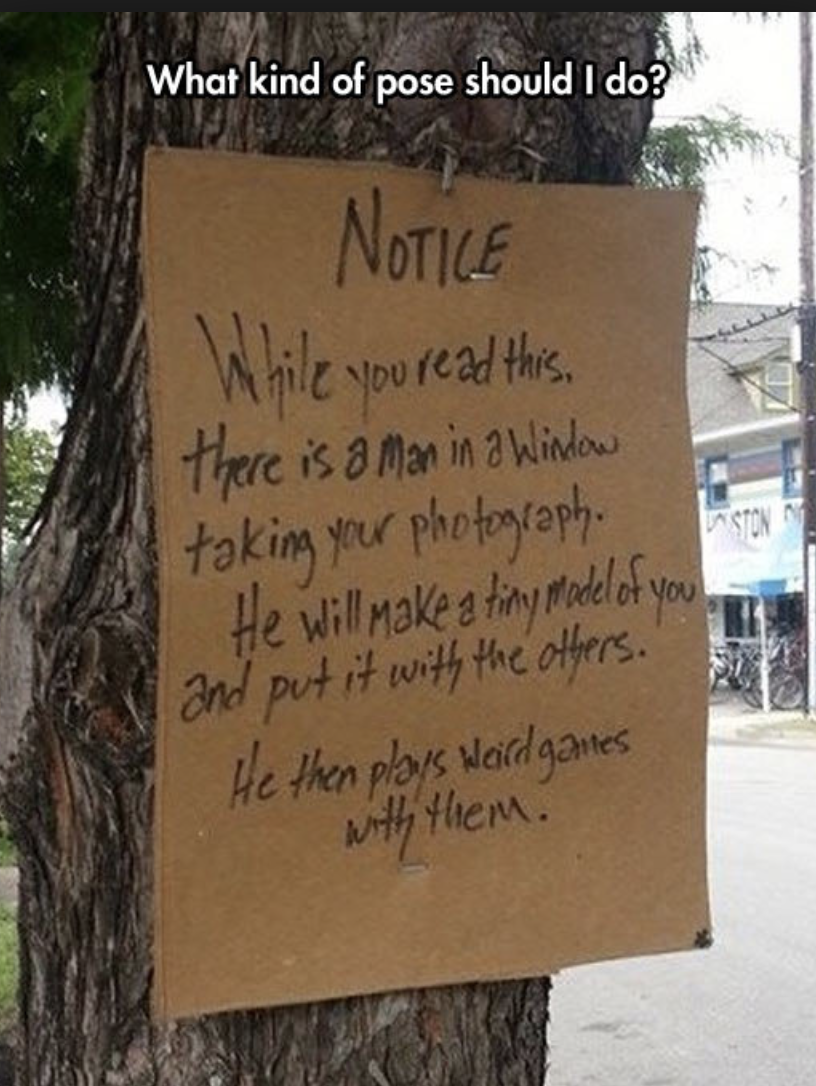 What kind of pose should I do?
NOTICE
While you read this,
there is a man in a window
taking your photograph.
He will make a tiny model of you
and put it with the others.
He then plays weird games
with them.